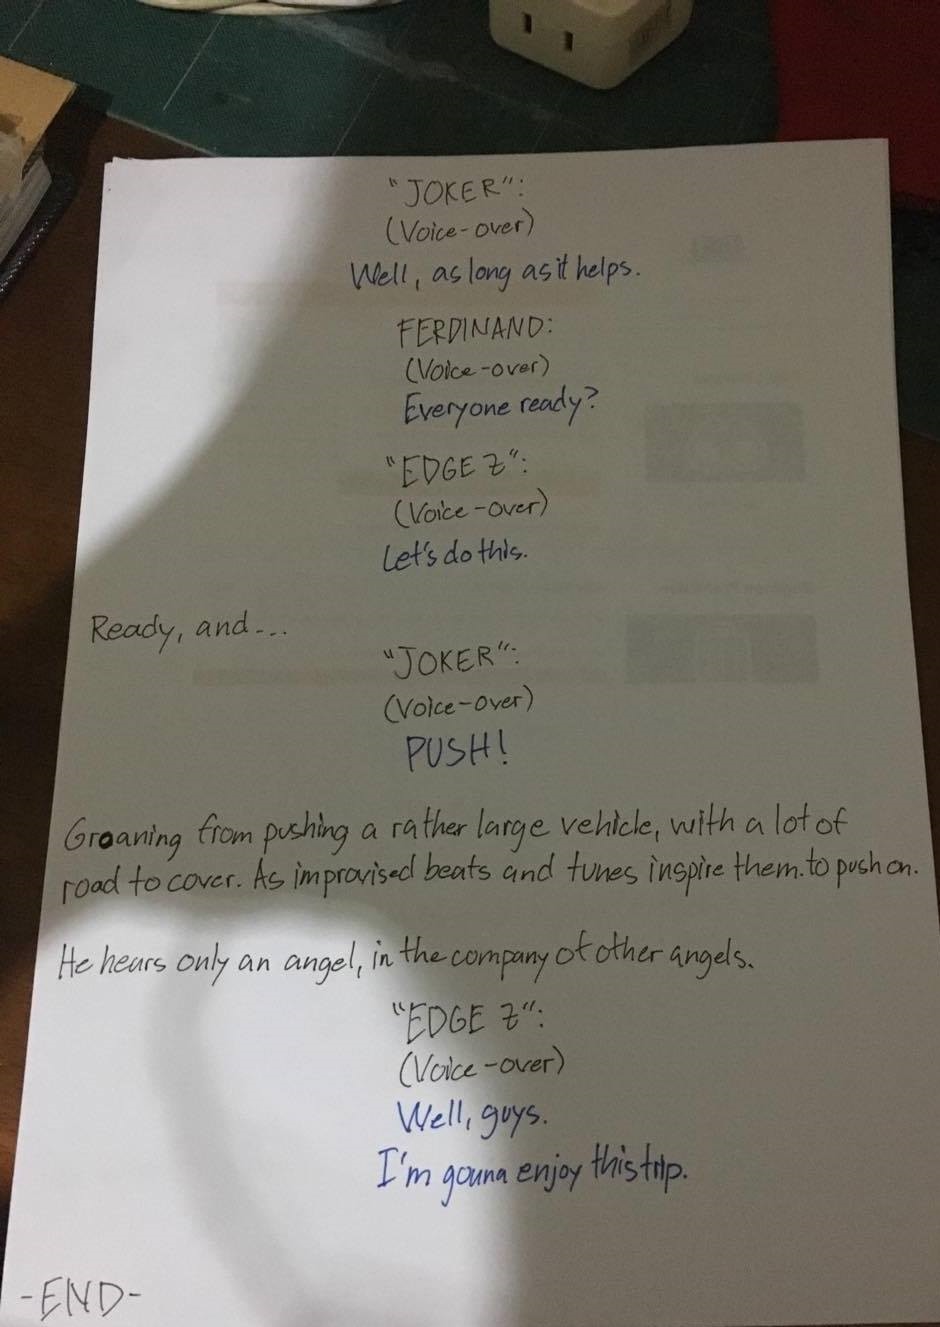 "JOKER":
(Voice-over)
Well, as long as it helps.
FERDINAND:
(Voice-over)
Everyone ready?
"EDGE Z":
(Voice-over)
Let's do this.
Ready, and...
"JOKER":
(Voice-over)
PUSH!
Groaning from pushing a rather large vehicle, with a lot of
road to cover. As improvised beats and tunes inspire them.to push on.
He hears only an angel, in the company of other angels.
"EDGE Z":
(Voice-over)
Well, guys.
I'm gounna enjoy this trip.
-END-